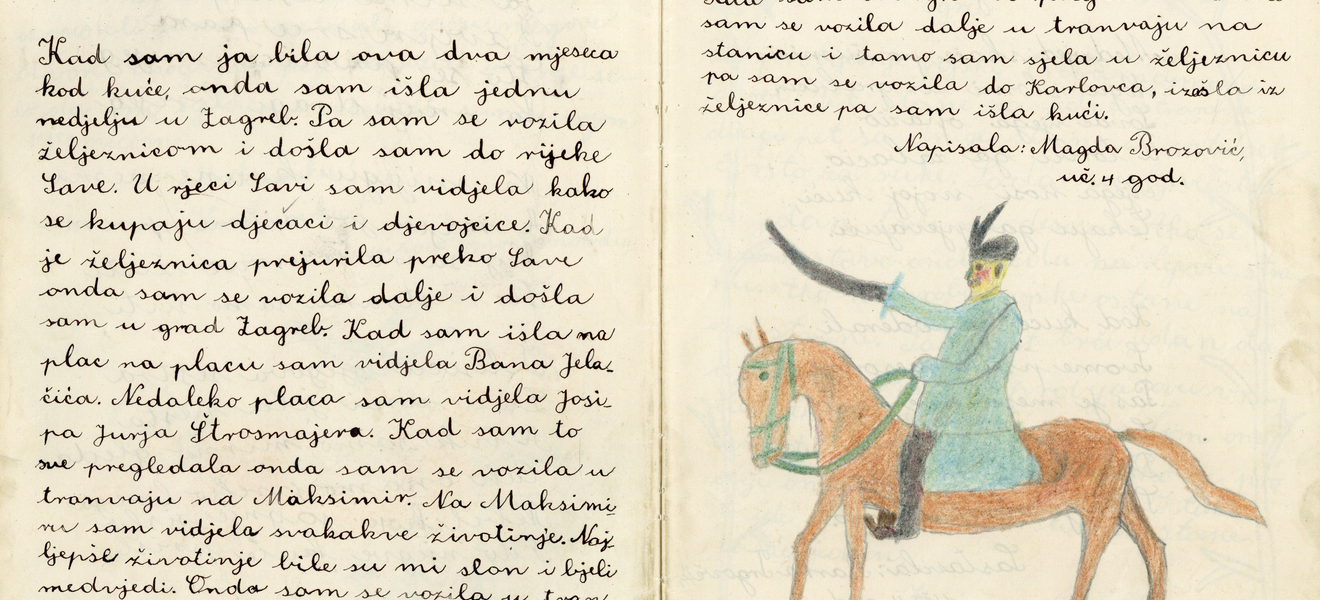 Kad sam ja bila ova dva mjeseca
kod kuće, onda sam išla jednu
nedjelju u Zagreb. Pa sam se vozila
željeznicom i došla sam do rijeke
Save. U rjeci Savi sam vidjela kako
se kupaju dječaci i djevojcice. Kad
je željeznica prejurila preko Save
onda sam se vozila dalje i došla
sam u grad Zagreb. Kad sam išla na
plac na placu sam vidjela Bana Jela-
čića. Nedaleko placa sam vidjela Josi-
pa Jurja Štrosmajera. Kad sam to
sve pregledala onda sam se vozila u
tranvaju na Maksimir. Na Maksimi
ru sam vidjela svakakve životinje. Naj-
ljepše životinje bile su mi slon i bjeli
medvjedi. Onda sam se vozila u tran-
sam se vozila dalje u tranvaju na
stanicu i tamo sam sjela u željeznicu
pa sam se vozila do Karlovca, izašla iz
željeznice pa sam išla kući.
Napisala: Magda Brozović,
uč. 4 god.